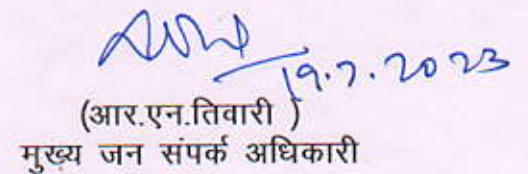 19.7.2023
(आर.एन.तिवारी )
मुख्य जन संपर्क अधिकारी